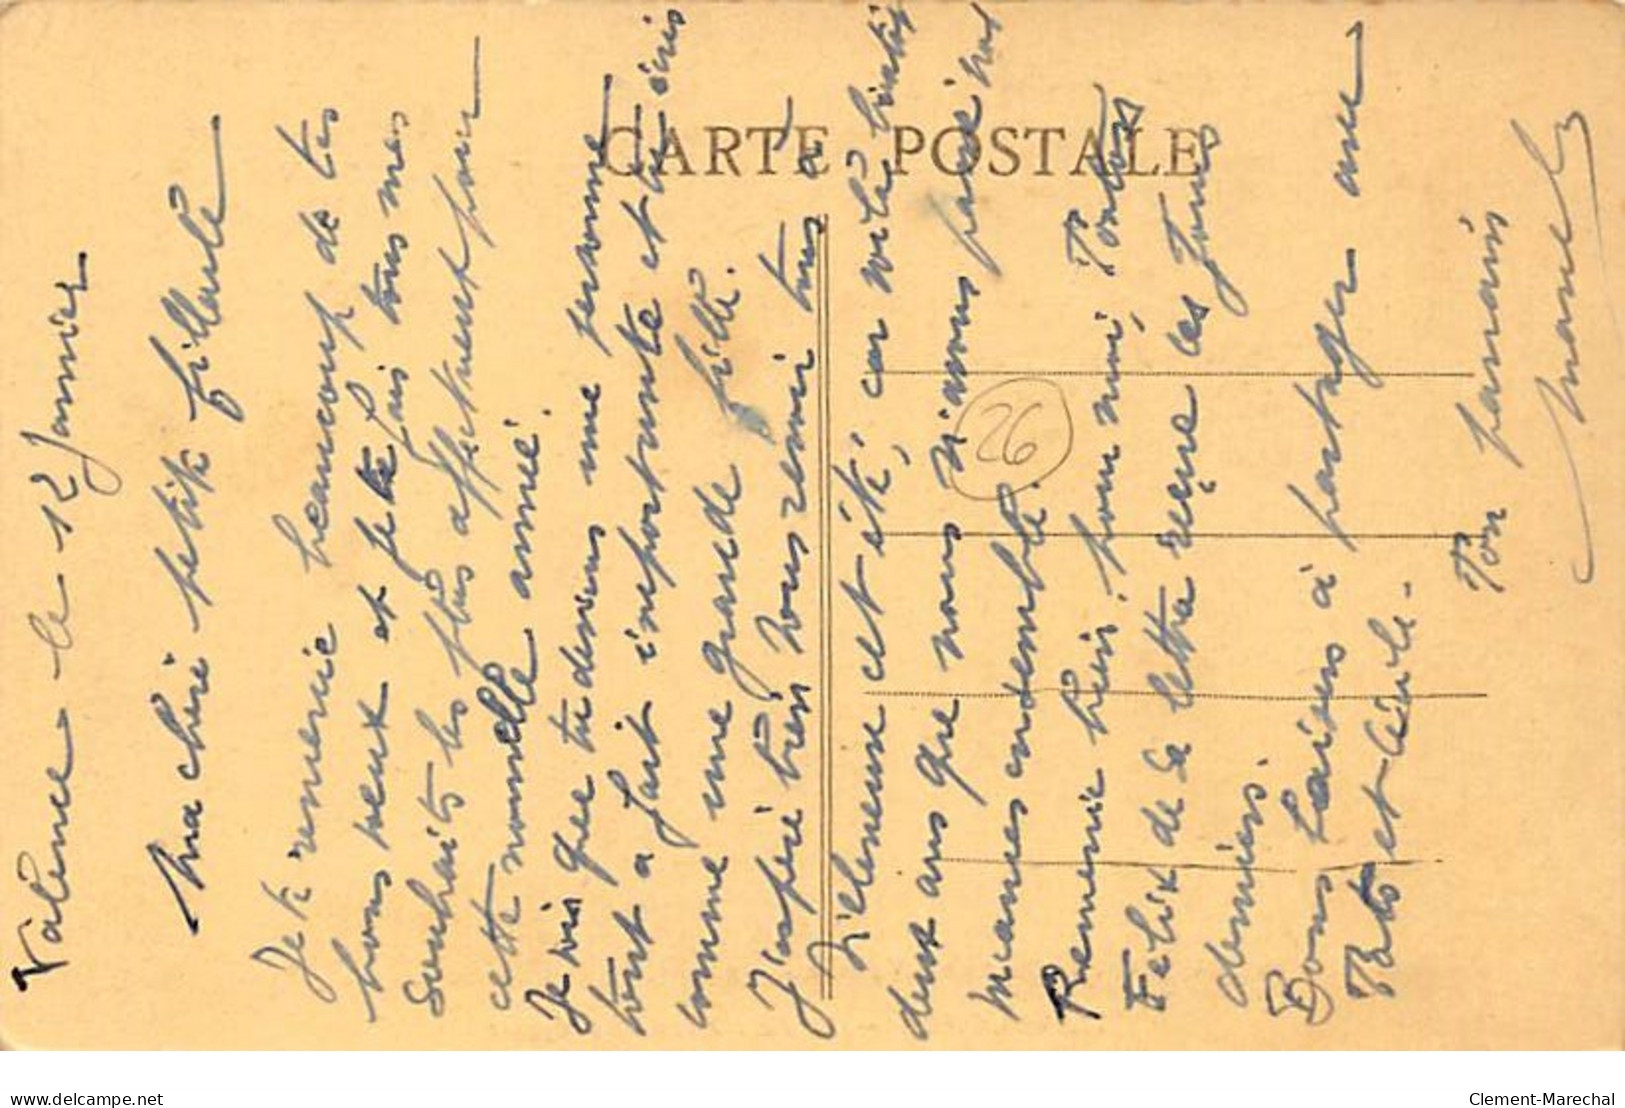 CARTE POSTALE
Valence le 12 Janvier
Ma chère petite filleule
Je te remercie beaucoup de tes
bons vœux et je te fais tous mes
souhaits les plus affectueux pour
cette nouvelle année.
Je vois que tu deviens une personne
tout a fait importante et tu écris
comme une grande fille.
J'espère bien vous revoir tous a
Villeneuve cet été, car voilà bientôt
deux ans que nous n'avons passé nos
vacances ensemble.
Remercie bien, pour moi, Tonton
Felix de sa lettre reçue ces jours
derniers.
Bons baisers à partager avec
Tato et Cécile.
Ton parrain
Marcel
26
delcampe.net
Clement-Marechal